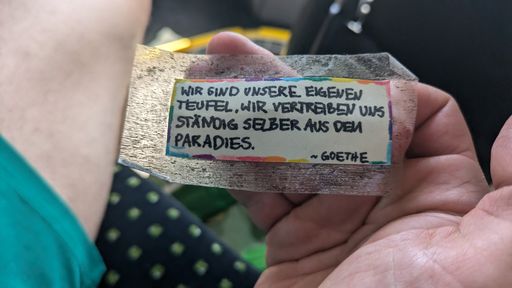 WIR SIND UNSERE EIGENEN
TEUFEL. WIR VERTREIBEN UNS
STÄNDIG SELBER AUS DEM
PARADIES.
~ GOETHE